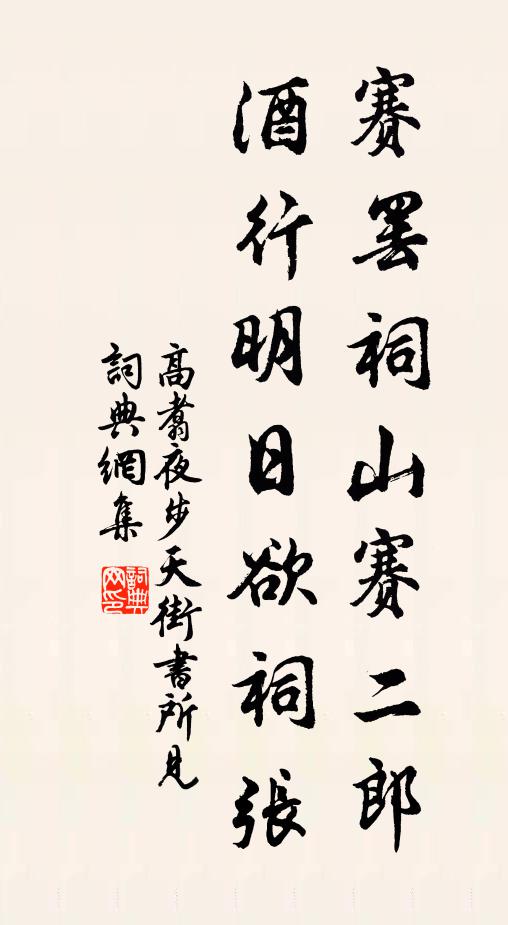 賽罷祠山賽二郎
酒行明日欲祠張
高翥夜步天街書所見
詞典網集
詞典网印